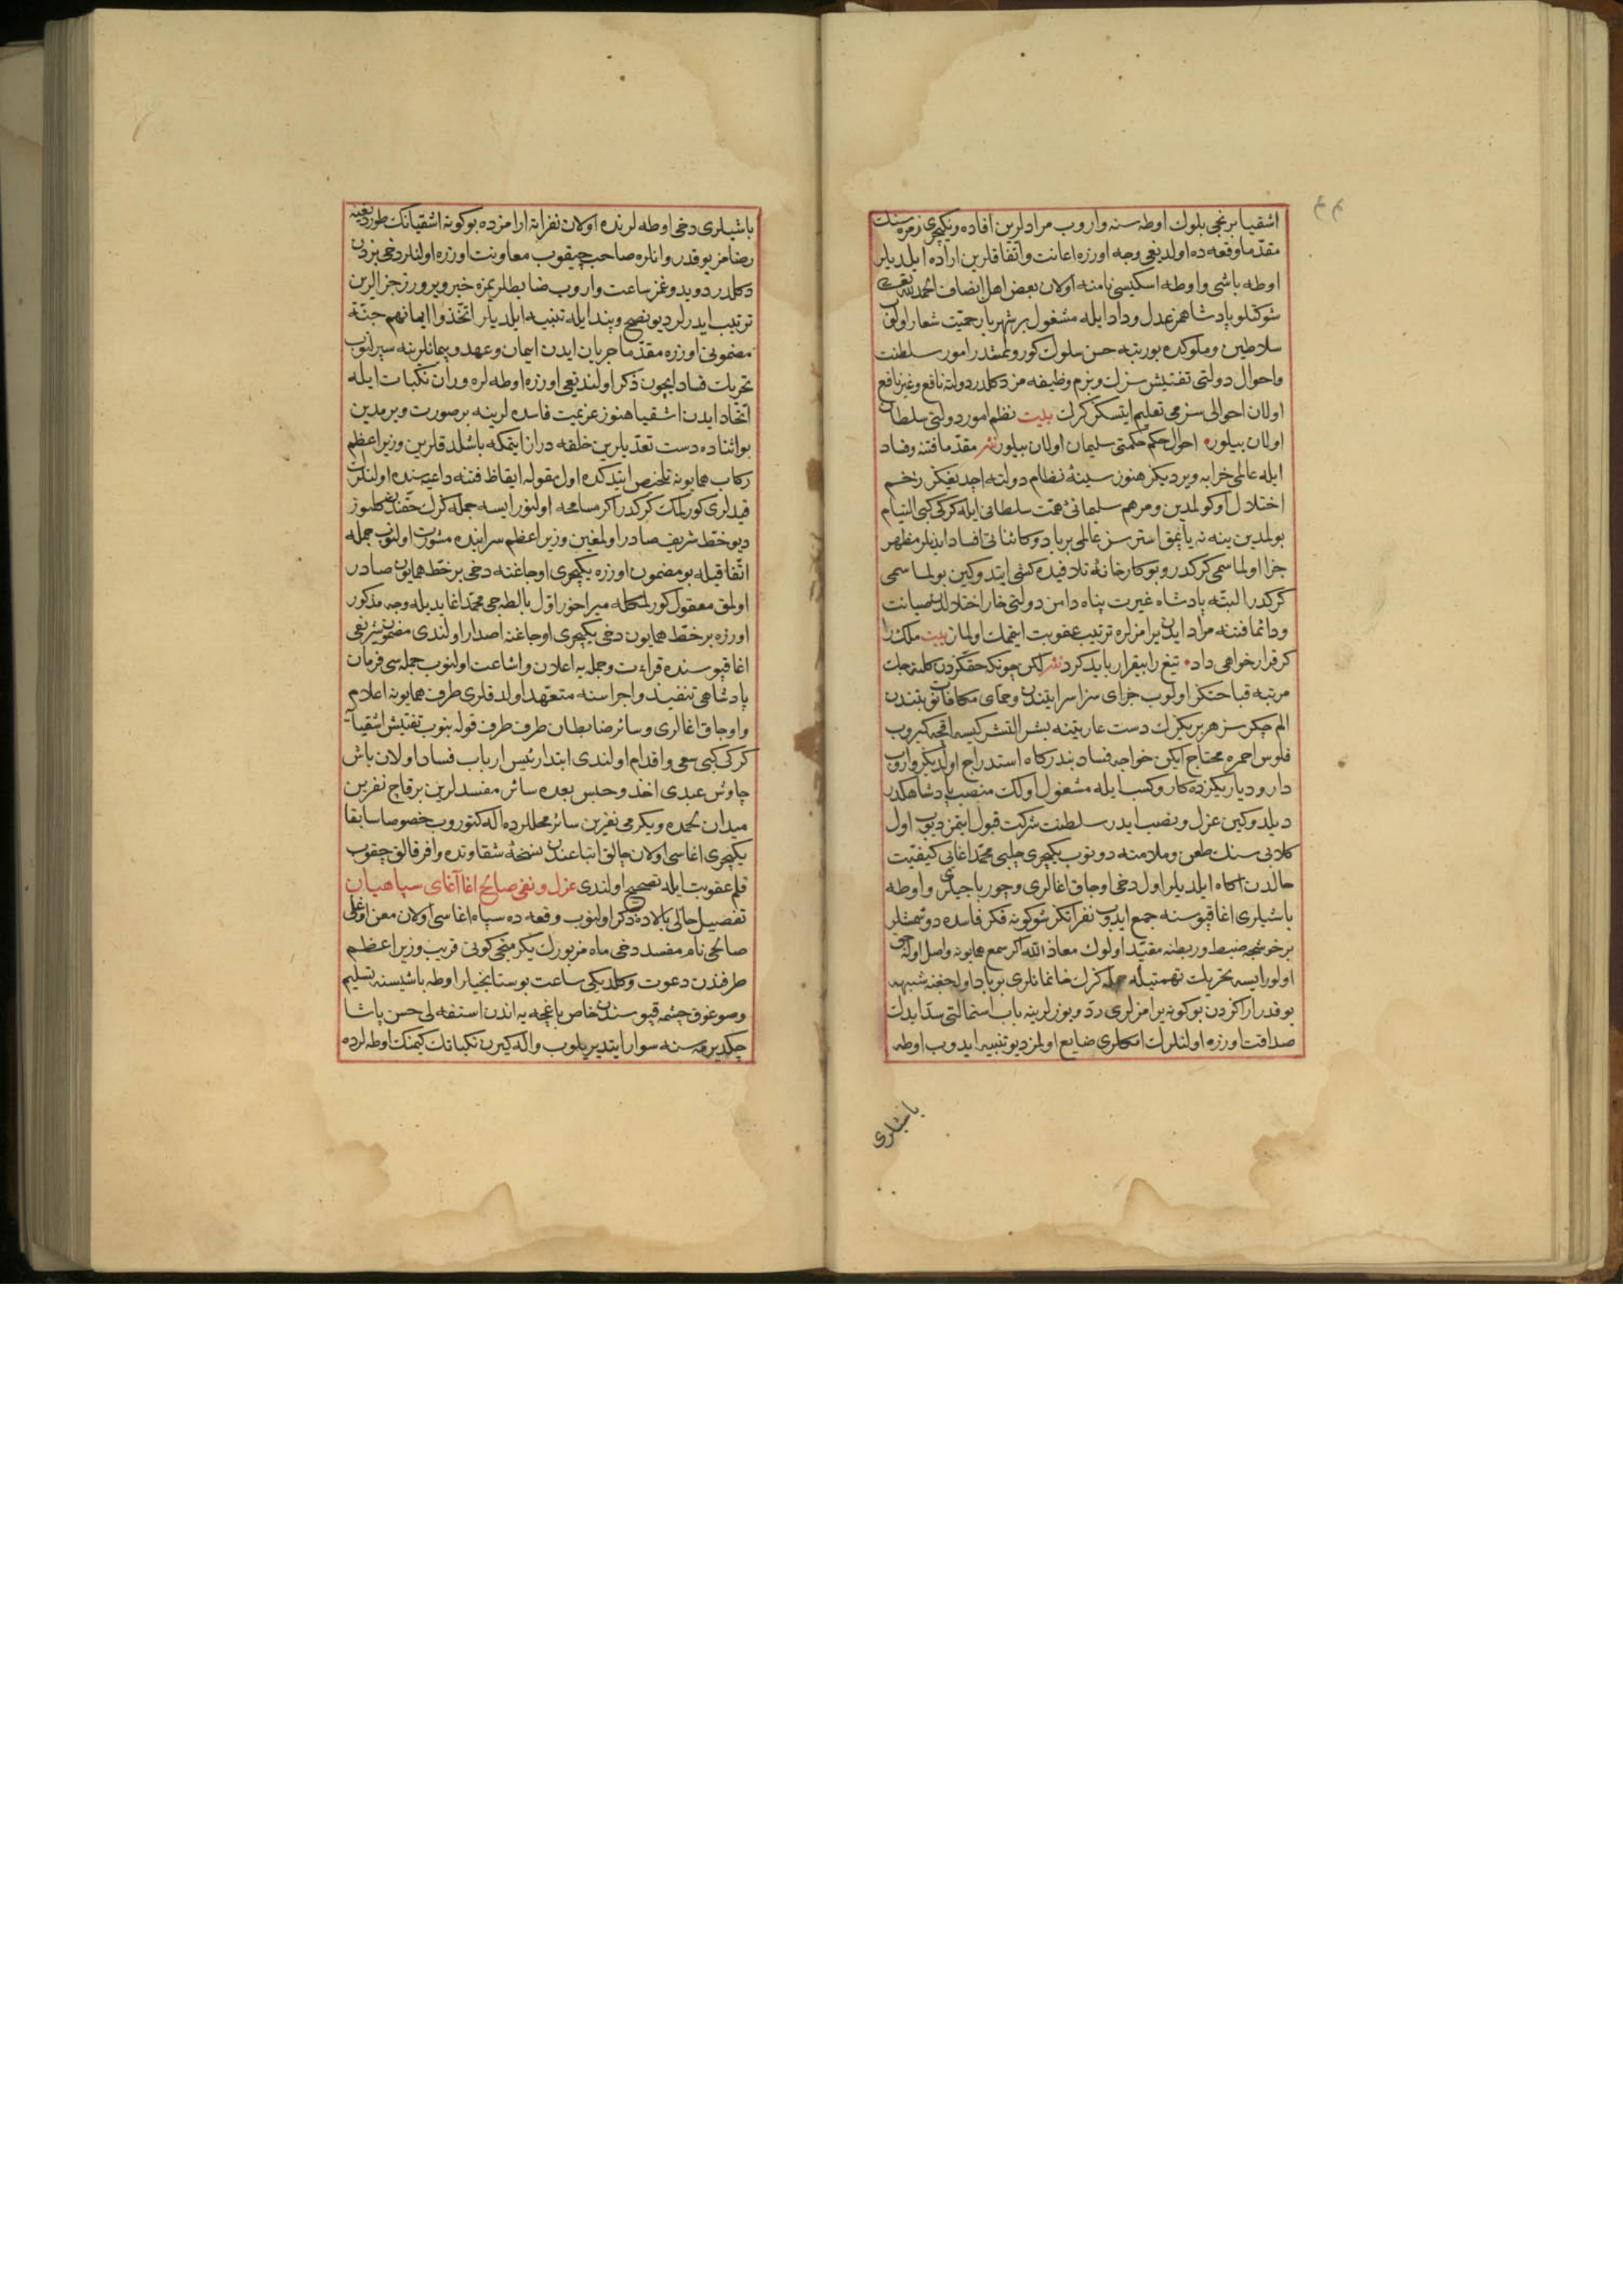 اشقيا برنجى بلوك اوطه سنه واروب مرادلرين افاده ويكيچرى زمره سنك
مقدّما وقعه ده اولديغى وجه اوزره اعانت واتّفاقلرين اراده ايلديلر
اوطه باشى واوطه اسكيسى نامنه اولان بعض اهل انصاف الحمد لله
شوكتلو پادشاهمز عدل وداد ايله مشغول بر شهريار حميّت شعار اولوب
سلاطين وملوكده بو رتبه حسن سلوك كورولمشدر امور سلطنت
واحوال دولتى تفتيش سزك وبزم وظيفه مز دكلدر دولته نافع وغير نافع
اولان احوالى سز مى تعليم ايتسكز كرك بيت نظم امور دولتى سلطان
اولان بيلور احوال حكم حكمتى سليمان اولان بيلور نثر مقدّما فتنه وفساد
ايله عالمى خرابه ويرديكز هنوز سينهٔ نظام دولته اچديغكز زخم
اختلال اوكولمدين ومرهم سليمانئ همّت سلطانى ايله كركى كبى التيام
بولمدين ينه نه ياپمق استرسز عالمى برباد وكائناتى افساد ايدنلر مظهر
جزا اولماسمى كركدر وبو كارخانه نلا فيده كشى ايتدوكين بولماسمى
كركدر البتّه پادشاه غيرت پناه دامن دولتى خار اختلالدن صيانت
ودائما فتنه مراد ايدن يرامزلره ترتيب عقوبت ايتمك اولمان بيت ملك را
كر قرار خواهى داد تيغ را بيقرار بايد كرد نثر لكن چونكه حقكزدن كلنمجك
مرتبه قباحتكز اولوب جزاى سزاسر ايتندن وحماى مكافاتى بتندن
الم چكرسز هر بريكزك دست عاريتنه بشر التشر كيسه اقچه كيروب
فلوس احمره محتاج ايكن خواجه فساد بندركاه استدراج اولديكز واروب
دار وديارىكزده كار وكسب ايله مشغول اولك منصب پادشاهكدر
ديلدوكين عزل ونصب ايدر سلطنت شركت قبول ايتمز ديوب اول
كلابى سنك طعن وملامتله دونوب يكيچرى چلبى محمّد اغايى كيفيّت
حالدن اكاه ايلديلر اول دخى اوجاق اغالرى وچورباجيلرى واوطه
باشيلرى اغا قپوسنه جمع ايدوب نفراتكز شو كونه فكر فاسده دوشمشلر
بر خوشجه ضبط وربطنه مقيّد اولوك معاذ الله اكر سمع همايونه واصل اوله جق
اولور ايسه تحريك تهمتيله جمله كزك خانمانلرى برباد اولاجغنه شبهه
يوقدر اراكزدن بو كونه يرامزلرى ردّ ويوزلرينه باب استمالتى سدّ ايدك
صداقت اوزره اولنلرك امكلرى ضايع اولمز ديو تنبيه ايدوب اوطه
باشيلرى
باشيلرى دخى اوطه لرنده اولان نفراته ارامزده بو كونه اشقيانك طورديغنه
رضامز يوقدر وانلره صاحب چيقوب معاونت اوزره اولنلر دخى بزدن
دكلدر دويدوغمز ساعت واروب ضابطلريمزه خبر ويرورز جزالرين
ترتيب ايدرلر ديو نصح وپند ايله تنبيه ايلديلر اتّخذوا ايمانهم جنّة
مضمونى اوزره مقدّما جريان ايدن ايمان وعهد وپيمانلرينه سپرلنوب
تحريك فساد ايچون ذكر اولنديغى اوزره اوطه لره وران نكبات ايله
اتّحاد ايدن اشقيا هنوز عزيمت فاسده لرينه بر صورت ويرمدين
بو اثناده دست تعدّيلرين خلقه دراز ايتمكه باشلدقلرين وزير اعظم
ركاب همايونه تلخيص ايتدكده اول مقوله ايقاظ فتنه داعيه سنده اولنلرك
قيدلرى كورلمك كركدر اكر مسامحه اولنور ايسه جمله كزك حقندن كلنور
ديو خطّ شريف صادر اولمغين وزير اعظم سراينده مشورت اولنوب جمله
اتّفاقيله بو مضمون اوزره يكيچرى اوجاغنه دخى بر خطّ همايون صادر
اولمق معقول كورلمكله ميراخور اوّل بالطه جى محمّد اغا يديله وجه مذكور
اوزره بر خطّ همايون دخى يكيچرى اوجاغنه اصدار اولندى مضمون شريفى
اغا قپوسنده قراءت وجمله يه اعلان واشاعت اولنوب جمله سى فرمان
پادشاهى تنفيذ واجراسنه متعهّد اولدقلرى طرف همايونه اعلام
واوجاق اغالرى وسائر ضابطان طرف طرف قوله بنوب تفتيش اشقيايه
كركى كبى سعى واقدام اولندى ابتدا رئيس ارباب فساد اولان باش
چاوش عبدى اخذ وحبس بعده سائر مفسدلرين برقاچ نفرين
ميدان لحده ويكرمى نفرين سائر محللرده اله كتوروب خصوصا سابقا
يكيچرى اغاسى اولان چالق اتباعندن نسخهٔ شقاوتده وافر قالق چقوب
قلم عقوبت ايله تصحيح اولندى عزل ونفى صالح اغا آغاى سپاهيان
تفصيل حالى بالاده ذكر اولنوب وقعه ده سپاه اغاسى اولان معن اوغلى
صالحى نام مفسد دخى ماه مزبورك يكرمنجى كونى قريب وزير اعظم
طرفندن دعوت وكلديكى ساعت بوستانجيلر اوطه باشيسنه تسليم
وصوغوق چشمه قپوسندن خاص باغچه يه اندن استفه لى حسن پاشا
چكديرمه سنه سوار ايتديريلوب واله كيرن نكباتك كيمنك اوطه لرده